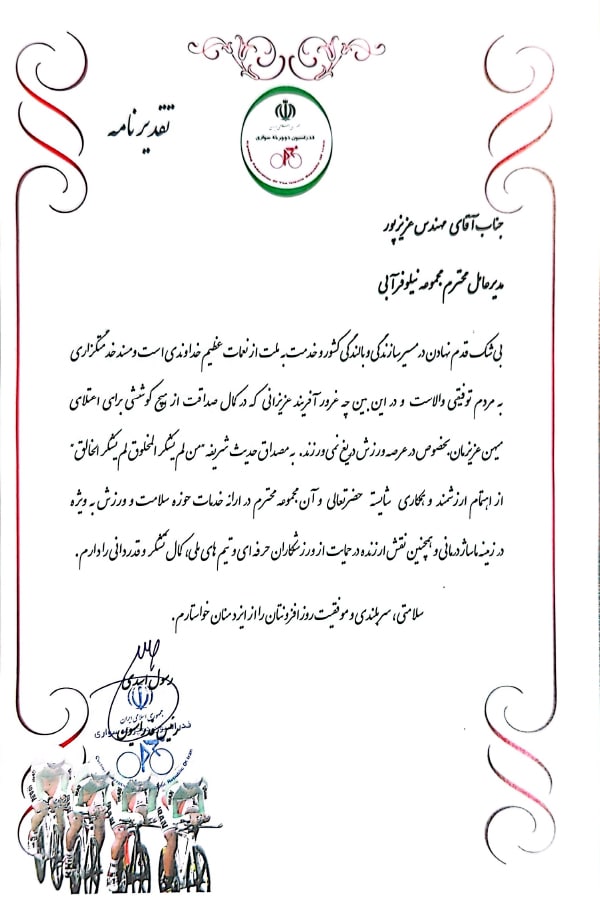 تقدیرنامه
جمهوری اسلامی ایران
فدراسیون دوچرخه سواری
جناب آقای مهندس عزیزپور
مدیرعامل محترم مجموعه نیلوفرآبی
بی شک قدم نهادن در مسیر سازندگی و بالندگی کشور و خدمت به ملت از نعمات عظیم خداوندی است و مسند خدمتگزاری
به مردم توفیقی والاست و در این بین چه غرور آفرینند عزیزانی که در کمال صداقت از هیچ کوششی برای اعتلای
میهن عزیزمان بخصوص در عرصه ورزش دریغ نمی ورزند. به مصداق حدیث شریفه "من لم یشکر المخلوق لم یشکر الخالق"
از اهتمام ارزشمند و همکاری شایسته حضرتعالی و آن مجموعه محترم در ارائه خدمات حوزه سلامت و ورزش به ویژه
در زمینه ماساژ درمانی و همچنین نقش ارزنده در حمایت از ورزشکاران حرفه ای و تیم های ملی، کمال تشکر و قدردانی را دارم.
سلامتی، سربلندی و موفقیت روزافزونتان را از ایزد منان خواستارم.
رسول اسدی
جمهوری اسلامی ایران
فدراسیون دوچرخه سواری
رئیس فدراسیون